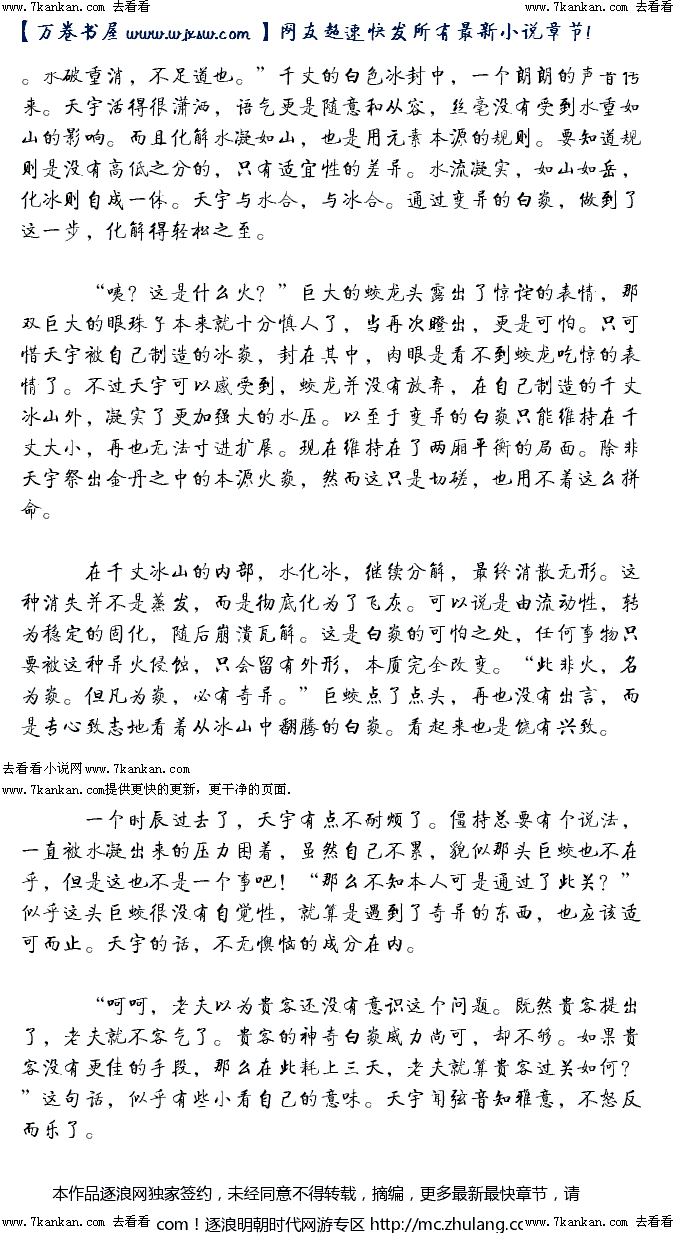 www.7kankan.com 去看看 www.7kankan.com 去看看
【万卷书屋 www.wjxsw.com 】网友超速快发所有最新小说章节!
。水破重消，不足道也。”千丈的白色冰封中，一个朗朗的声音传
来。天宇活得很潇洒，语气更是随意和从容，丝毫没有受到水重如
山的影响。而且化解水凝如山，也是用元素本源的规则。要知道规
则是没有高低之分的，只有适宜性的差异。水流凝实，如山如岳，
化冰则自成一体。天宇与水合，与冰合。通过变异的白焱，做到了
这一步，化解得轻松之至。
“咦？这是什么火？”巨大的蛟龙头露出了惊诧的表情，那
双巨大的眼珠子本来就十分慎人了，当再次瞪出，更是可怕。只可
惜天宇被自己制造的冰焱，封在其中，肉眼是看不到蛟龙吃惊的表
情了。不过天宇可以感受到，蛟龙并没有放弃，在自己制造的千丈
冰山外，凝实了更加强大的水压。以至于变异的白焱只能维持在千
丈大小，再也无法寸进扩展。现在维持在了两厢平衡的局面。除非
天宇祭出金丹之中的本源火焱，然而这只是切磋，也用不着这么拼
命。
在千丈冰山的内部，水化冰，继续分解，最终消散无形。这
种消失并不是蒸发，而是彻底化为了飞灰。可以说是由流动性，转
为稳定的固化，随后崩溃瓦解。这是白焱的可怕之处，任何事物只
要被这种异火侵蚀，只会留有外形，本质完全改变。“此非火，名
为焱。但凡为焱，必有奇异。”巨蛟点了点头，再也没有出言，而
是专心致志地看着从冰山中翻腾的白焱。看起来也是饶有兴致。
去看看小说网www.7kankan.com
www.7kankan.com提供更快的更新，更干净的页面.
一个时辰过去了，天宇有点不耐烦了。僵持总要有个说法，
一直被水凝出来的压力困着，虽然自己不累，貌似那头巨蛟也不在
乎，但是这也不是一个事吧！“那么不知本人可是通过了此关？”
似乎这头巨蛟很没有自觉性，就算是遇到了奇异的东西，也应该适
可而止。天宇的话，不无懊恼的成分在内。
“呵呵，老夫以为贵客还没有意识这个问题。既然贵客提出
了，老夫就不客气了。贵客的神奇白焱威力尚可，却不够。如果贵
客没有更佳的手段，那么在此耗上三天，老夫就算贵客过关如何？
”这句话，似乎有些小看自己的意味。天宇闻弦音知雅意，不怒反
而乐了。
本作品逐浪网独家签约，未经同意不得转载，摘编，更多最新最快章节，请
www.7kankan.com 去看看 com！逐浪明朝时代网游专区 http://mc.zhulang.co www.7kankan.com 去看看